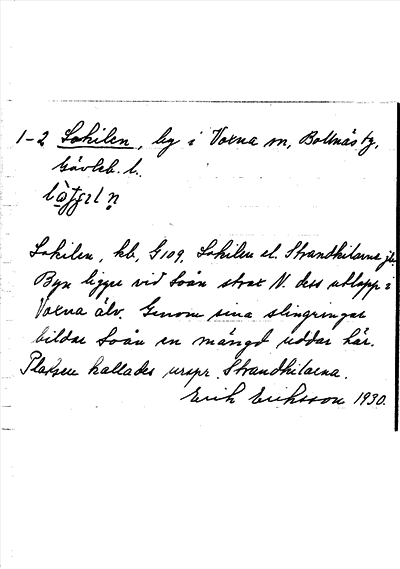 1-2 Lokilen, by i Voxna sn, Bollnäs tg,
Gävleb. l.
Lokilen, kb, G109, Lokilen el. Strandkilarna jb.
Byn ligger vid Loån strax N. dess utlopp i
Voxna älv. Genom sina slingringar
bildar Loån en mängd uddar här.
Platsen kallades urspr. Strandkilarna.
Erik Eriksson 1930.